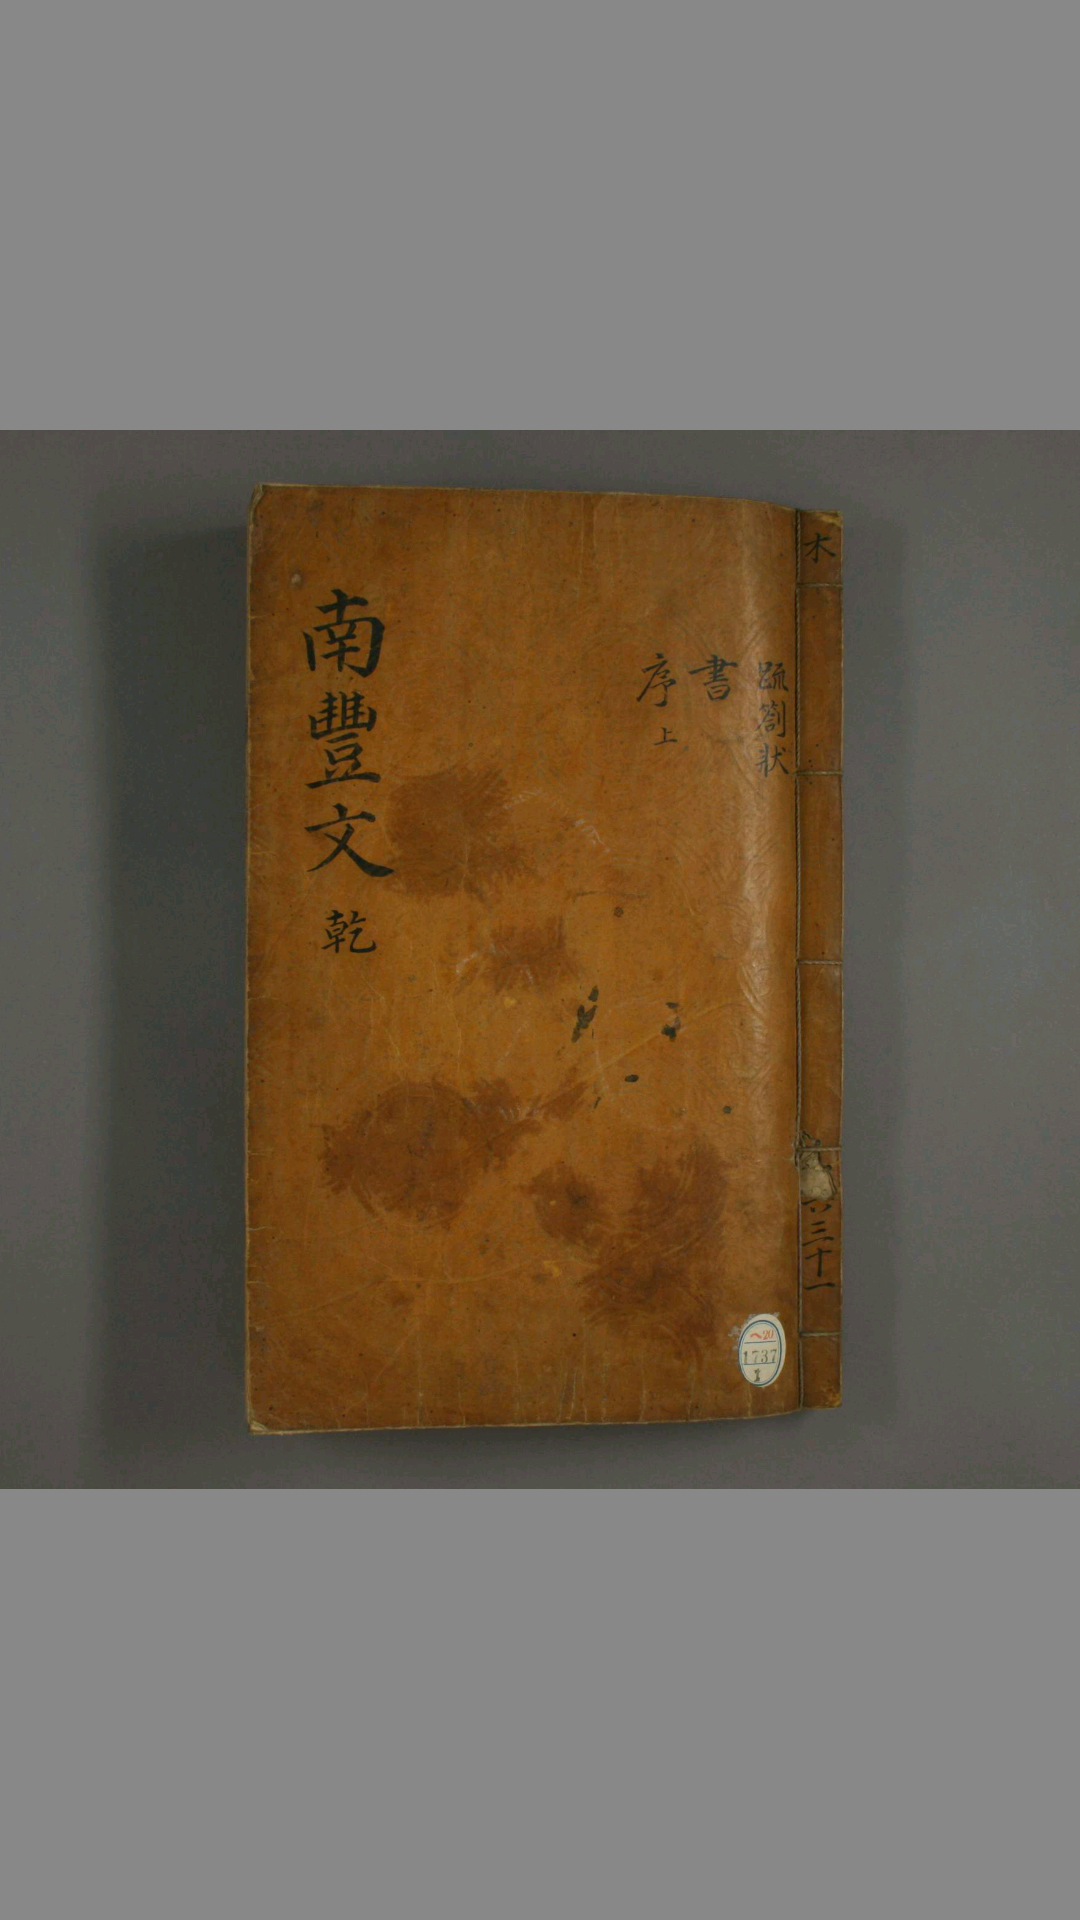 木
三十一
疏劄狀
書
序上
南豐文 乾
ヘ20
1737
1